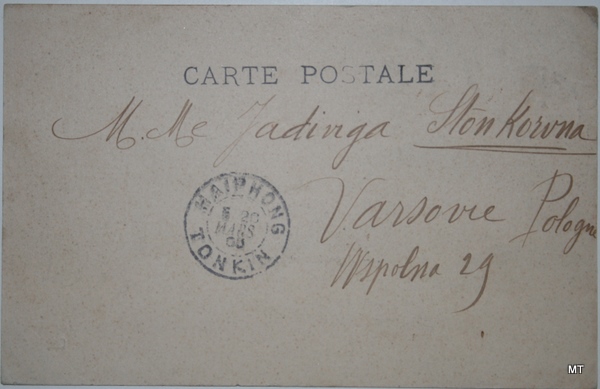 CARTE POSTALE
M. Me Jadiviga Stönkorvna
Varsovie Pologne
Wspolna 29
HAIPHONG
26
MARS
05
TONKIN
MT